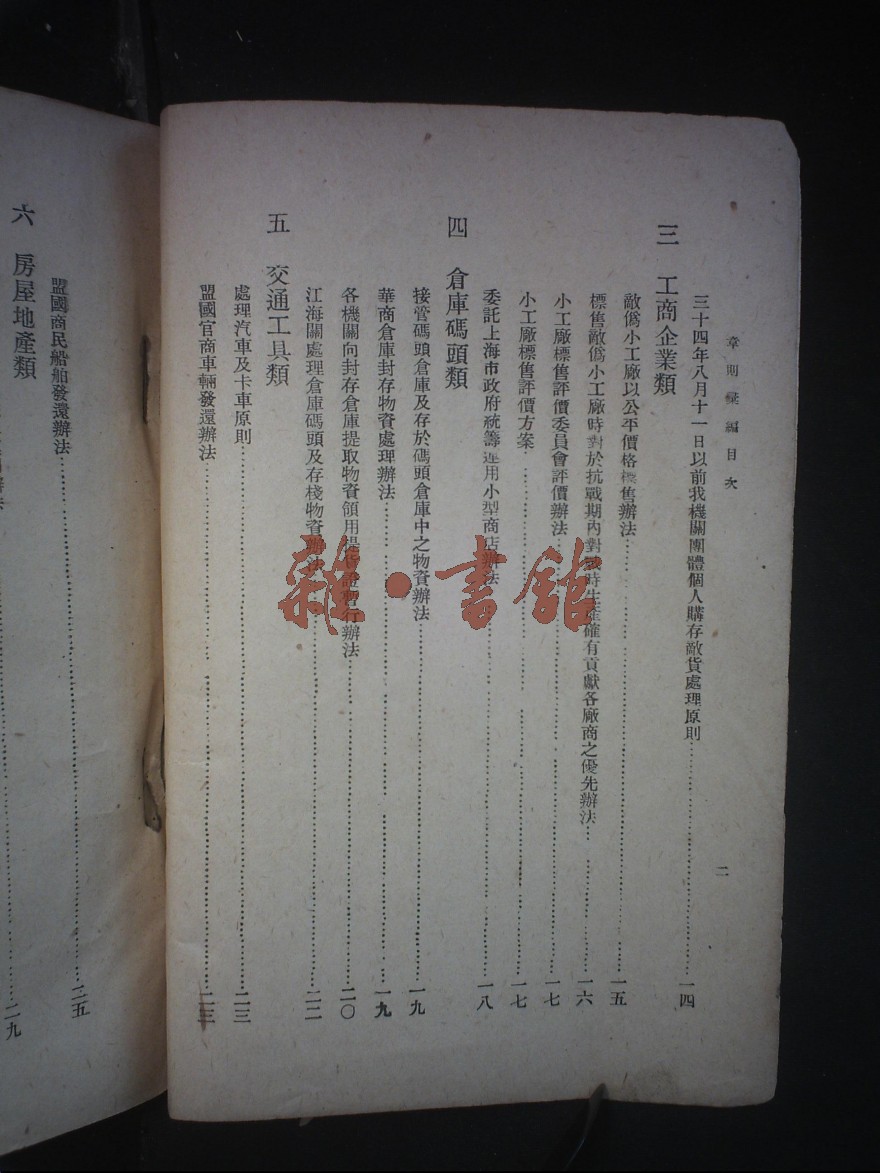 章則彙編目次
二
三十四年八月十一日以前我機關團體個人購存敵貨處理原則……一四
三 工商企業類
敵僞小工廠以公平價格標售辦法……一五
標售敵僞小工廠時對於抗戰期內對戰時生產確有貢獻各廠商之優先辦法……一六
小工廠標售評價委員會評價辦法……一七
小工廠標售評價方案……一七
委託上海市政府統籌運用小型商店辦法……一八
四 倉庫碼頭類
接管碼頭倉庫及存於碼頭倉庫中之物資辦法……一九
華商倉庫封存物資處理辦法……一九
各機關向封存倉庫提取物資領用提貨證暫行辦法……二〇
江海關處理倉庫碼頭及存棧物資辦法……二二
五 交通工具類
處理汽車及卡車原則……二三
盟國官商車輛發還辦法……二三
盟國商民船舶發還辦法……二五
六 房屋地產類
辦法……二九
雜·書館